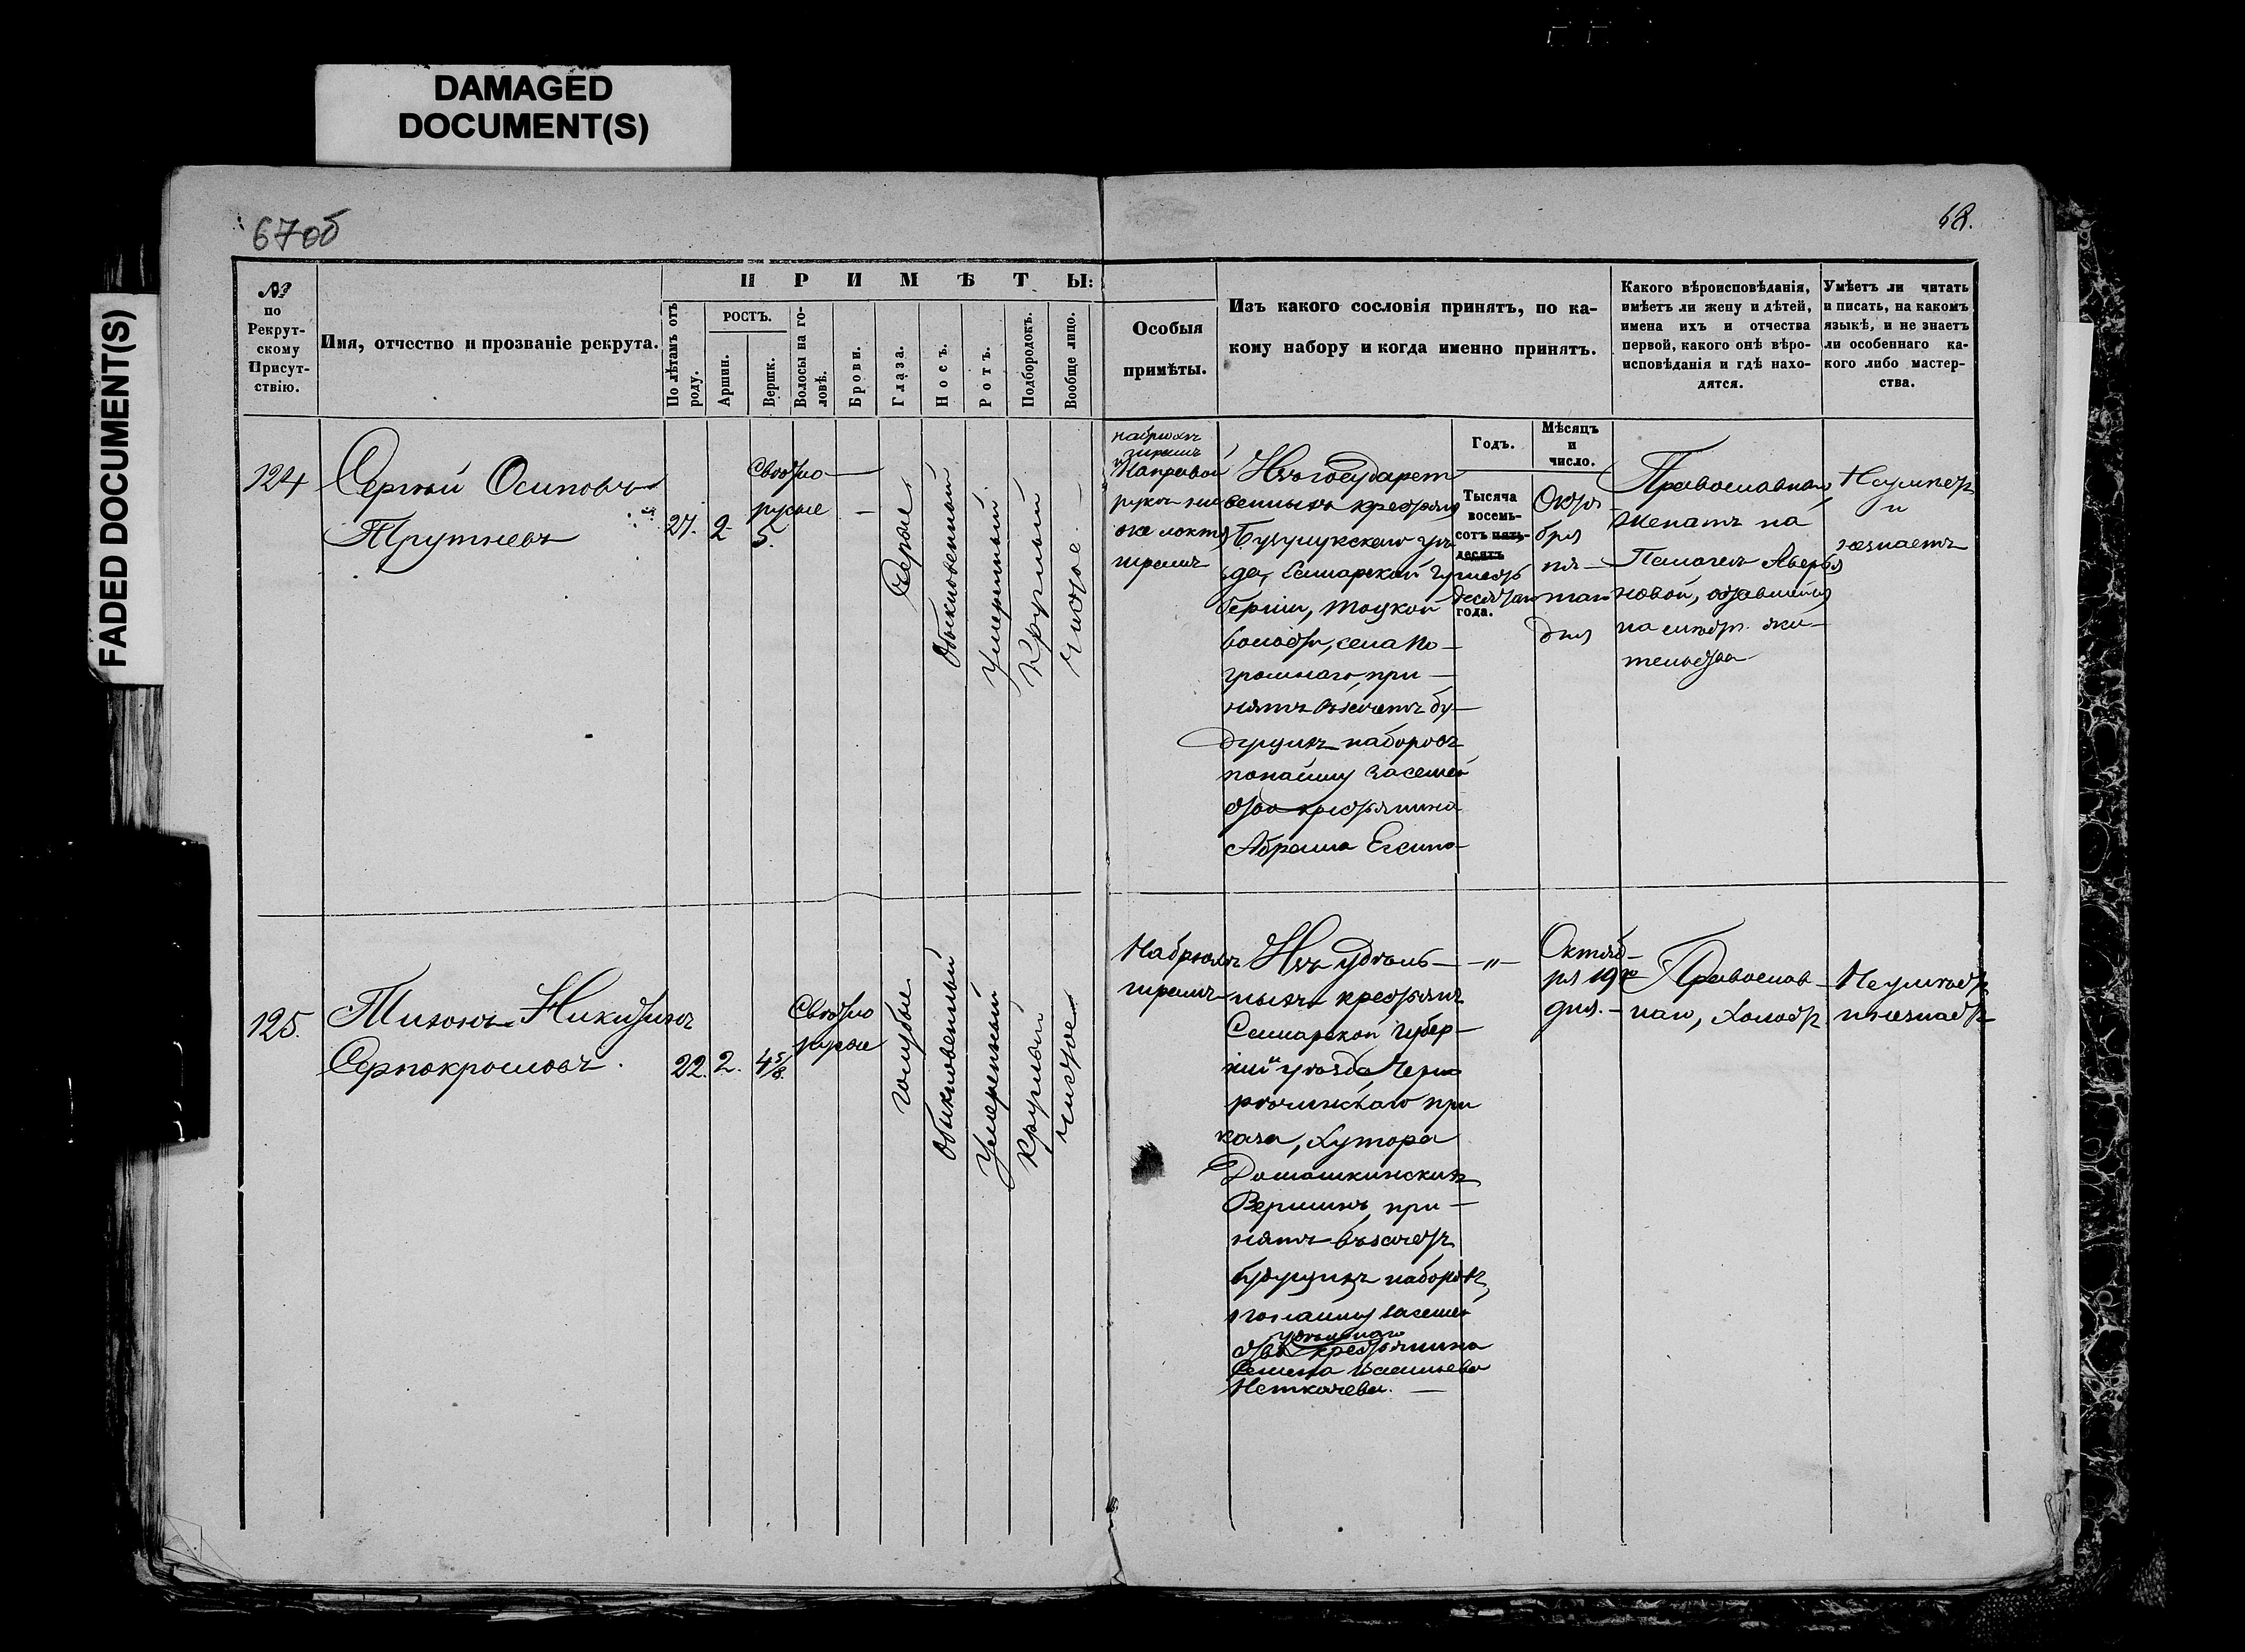 DAMAGED
DOCUMENT(S)
FADED DOCUMENT(S)
67об
68.
№
по
Рекрут-
скому
Присут-
ствію.
Имя, отчество и прозваніе рекрута.
ПРИМѢТЫ:
По лѣтамъ отъ
роду.
РОСТЪ.
Аршин.
Вершк.
Волосы на го-
ловѣ.
Брови.
Глаза.
Носъ.
Ротъ.
Подбородокъ.
Вообще лицо.
Особыя
примѣты.
Изъ какого сословія принятъ, по ка-
кому набору и когда именно принятъ.
Какого вѣроисповѣданія,
имѣетъ ли жену и дѣтей,
имена ихъ и отчества
первой, какого онѣ вѣро-
исповѣданія и гдѣ нахо-
дятся.
Умѣетъ ли читать
и писать, на какомъ
языкѣ, и не знаетъ
ли особеннаго ка-
кого либо мастер-
ства.
124
Сергѣй Осиповъ
Трутневъ
27.
2
5.
Свѣтло
русые
Сѣрые
Обыкновенный
Умеренный
Круглый
Чистое
набрюхѣ
шрамъ
Направой
рукѣ ни
же локтя
шрамъ
Изъ государст
венныхъ крестьян
Бузулукскаго уѣз
да, Самарской гу
берніи, Тоцкой
волости, села По-
громнаго, при-
нятъ въ счетъ бу-
дущихъ наборовъ
понайму засемей
ство крестьянина
Абрама Есипо-
Годъ.
Тысяча
восемь-
сотъ пять-
десятъ
шесть
десятаго
года.
Мѣсяцъ
и
число.
Октя
бря
пя-
таго
дня
Православнаго
женатъ на
Пелагеѣ Аверья
новой, оставшейся
на мѣстѣ жи-
тельства
Неумѣетъ
и
незнаетъ
125.
Тихонъ Никитинъ
Серпокрыловъ.
22.
2.
4 5/8.
Свѣтло
русые
голубые
Обыкновенный
Умеренный
круглый
чистое
Набрюхѣ
шрамъ
Изъ удѣль-
ныхъ крестьянъ
Самарской губер-
ніи и уѣзда
при
каза, хутора
Домашкинскихъ
Вершинъ, при-
нятъ въ счетъ
будущихъ наборовъ,
понайму засемей
удѣльнаго
ство крестьянина
Семена Васильева
Неткачева.
-"-
Октяб-
ря 19го
дня.-
Православ-
наго, холостъ
Неумѣетъ
инезнаетъ